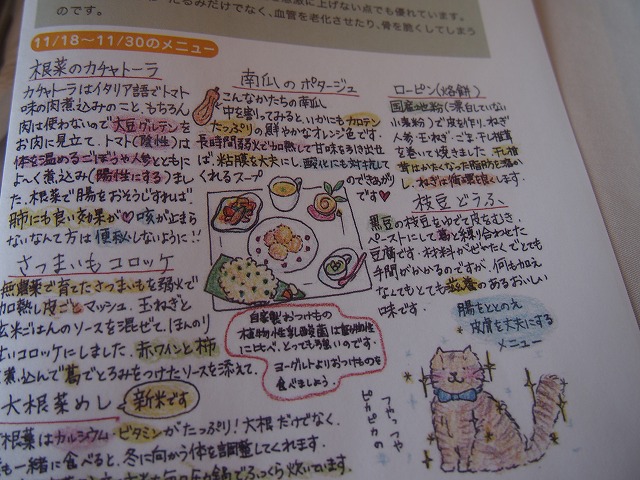 激に上げない点でも優れています。
たるみだけでなく、血管を老化させたり、骨を脆くしてしまう
のです。
11/18〜11/30のメニュー
根菜のカチャトーラ
カチャトーラはイタリア語でトマト
味の肉煮込みのこと。もちろん
肉は使わないので大豆グルテンを
お肉に見立て、トマト(陰性)は
体を温めるごぼうや人参とともに
よ〜く煮込み(陽性にする)まし
た。根菜で腸をおそうじすれば、
肺にも良い効果が♥咳が止まら
ないなんて方は便秘しないように!!
さつまいもコロッケ
無農薬で育てたさつまいもを弱火で
加熱し皮ごとマッシュ。玉ねぎと
玄米ごはんのソースを混ぜて、ほんのり
甘いコロッケにしました。赤ワインと柿
煮込んで葛でとろみをつけたソースを添えて。
大根菜めし
新米です
根菜はカルシウム・ビタミンがたっぷり!大根だけでなく、
も一緒に食べると、冬に向かう体を調整してくれます。
毎日圧力鍋でふっくら炊いています。
南瓜のポタージュ
こんなかたちの南瓜。
中を割ってみると、いかにもカロテン
たっぷりの鮮やかなオレンジ色です。
長時間弱火で加熱して甘味を引き出せ
ば、粘膜を丈夫にし、酸化にも対抗して
くれるスープ
のできあがり
です♥
自家製おつけもの
植物性乳酸菌は動物性
に比べ、とっても強いのです。
ヨーグルトよりおつけものを
食べましょう。
ローピン(烙餅)
国産地粉(漂白していない
小麦粉)で皮を作り、ねぎ
人参・玉ねぎ・ごま・干し椎茸
を巻いて焼きました。干し椎
茸はかたくなった脂肪を溶か
し、ねぎは循環を良くします。
枝豆どうふ
黒豆の枝豆をゆでて皮をむき、
ペーストにして葛と練り合わせた
豆腐です。材料がぜいたくでとても
手間がかかるのですが、何も加え
なくてもとても滋養のあるおいしい
味です。
腸をととのえ
皮膚を丈夫にする
メニュー
つやっつや
ピカピカの